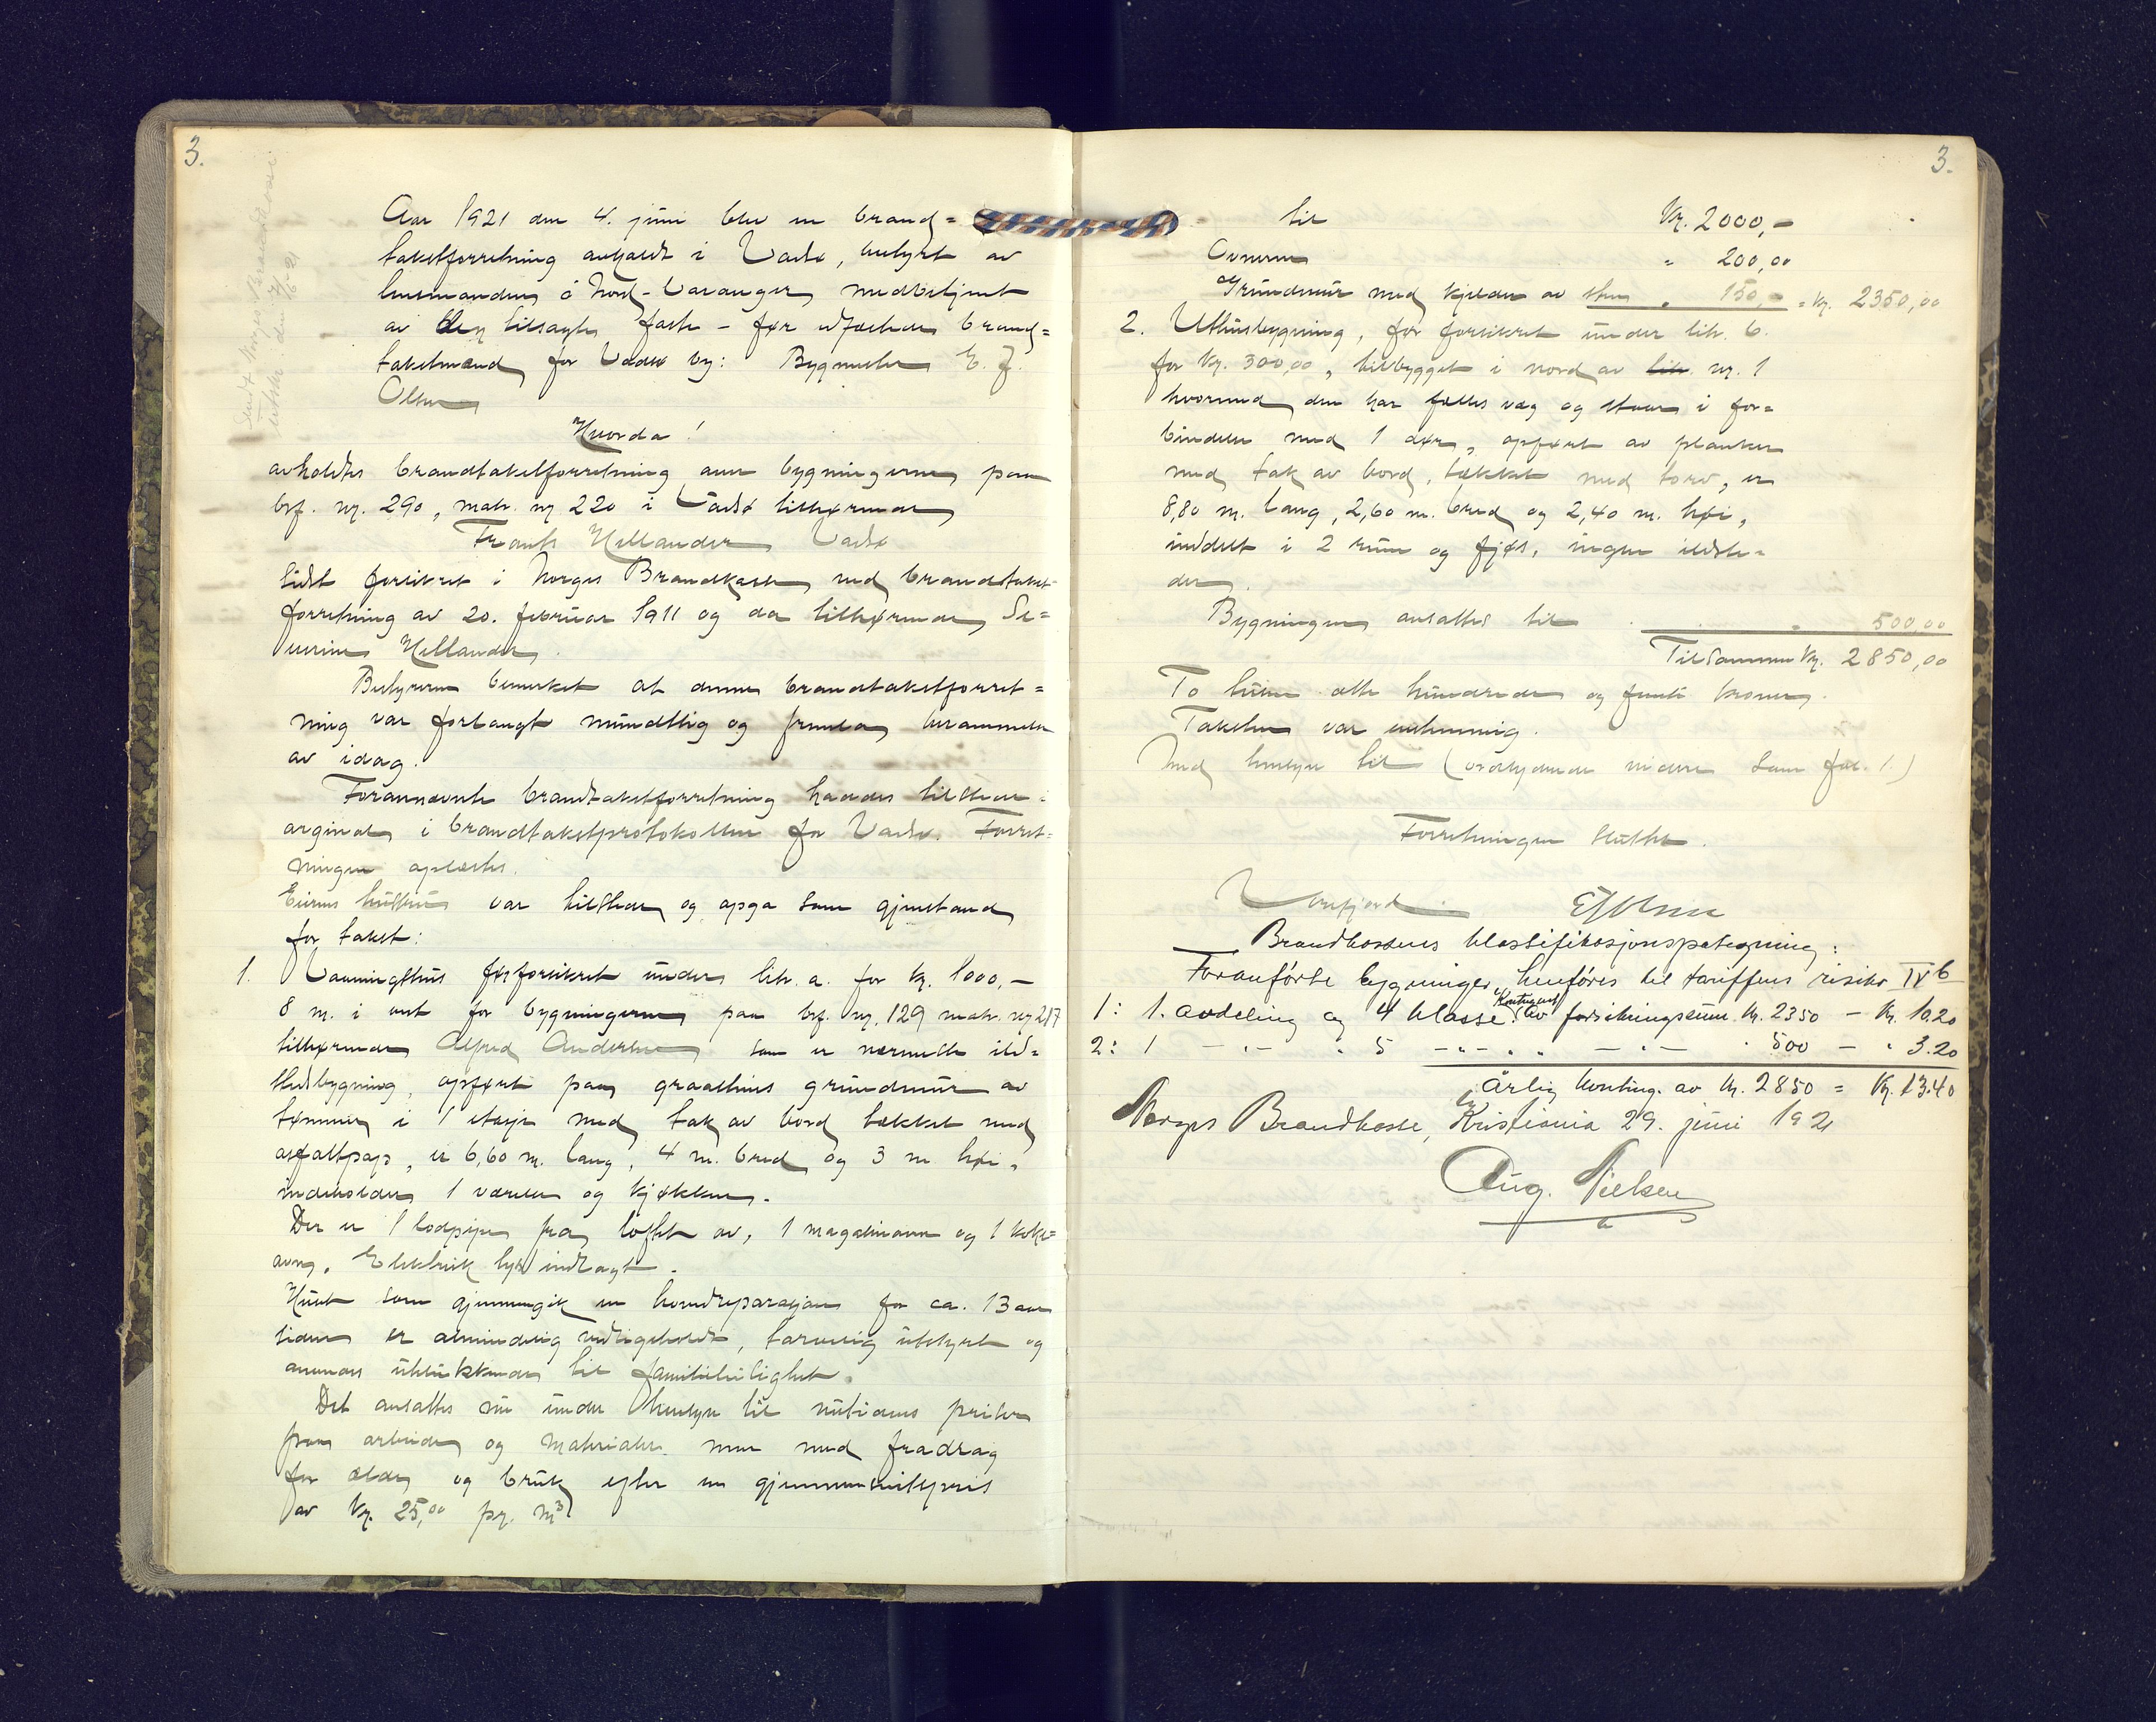 3.
Sendt Norges Brandkasse
utskr. den 7/6 21
Aar 1921 den 4. juni blev en brand=
takstforretning avholdt i Vadsø, bestyrt av
lensmanden i Nord-Varanger med betjent
av den tilsagte faste - før edfæstede brand=
takstmænd for Vadsø by: Bygmester E. J.
Olsen
Hvorda!
avholdtes brandtakstforretning over bygningerne paa
brf. nr. 290, matr. nr 220 i Vadsø tilhørende
Frants Hellander Vadsø
sidst forsikret i Norges Brandkasse ved brandtakst-
forretning av 20. februar 1911 og da tilhørende Se=
verine Hellander.
Bestyreren bemerket at denne brandtakstforret=
ning var forlangt mundtlig og fremla berammelse
av idag.
Forannævnte brandtakstforretning haddes tilstede
originalt i brandtakstprotokollen for Vadsø. Forret=
ningen oplæstes.
Eierens hustru var tilstede og opga som gjenstand
for takst:
1. Vaaningshus før forsikret under litr. a. for kr. 1000,-
8 m. i vest for bygningerne paa brf. nr. 129 matr. nr 217
tilhørende Alfred Andersen som er nærmeste ild=
stedsbygning, opført paa graastens grundmur av
tømmer i 1 etasje med tak av bord tækket med
asfaltpap, er 6,60 m. lang, 4 m. bred og 3 m høi,
indeholder 1 værelse og kjøkken.
Der er 1 lodpipe fra loftet av, 1 magasinovn og 1 koke=
ovn. Elektrisk lys indlagt.
Huset som gjennemgik en hovedreparasjon for ca. 13 aar
siden er almindelig vedlikeholdt, tarvelig utstyrt og
ansees utelukkende til familieleilighet.
Det ansattes nu under hensyn til nutidens priser
paa arbeide og materialer men med fradrag
for ælde og bruk efter en gjennemsnitspris
av kr. 25,00 pr. m3
3.
til Kr. 2000,-
Ovnene " 200,00
Grundmur med kjelder av sten " 150,- = kr. 2350,00
2. Uthusbygning, før forsikret under litr. b.
for kr. 300,00, tilbygget i nord av litr. nr. 1
hvormed den har fælles væg og staar i for=
bindelse med 1 dør, opført av planker
med tak av bord, tækket med torv, er
8,80 m. lang, 2,60 m. bred og 2,40 m. høi,
inddelt i 2 rum og fjøs, ingen ildste=
der.
Bygningen ansattes til " 500,00
Tilsammen kr. 2850,00
To tusen otte hundrede og femti kroner.
Taksten var enstemmig.
Med hensyn til (ordlydende videre som fol. 1.)
Forretningen sluttet.
EJOlsen
Brandkassens klassifikasjonspategning:
Foranførte bygninger henføres til tariffens risiko IVb
1: 1. avdeling og 4 klasse. Kontingent av forsikringssum kr. 2350 - kr. 10.20
2: 1 -"- " 5 -"- " " -"- " 500 - " 3.20
Årlig konting. av kr. 2850 = kr. 13.40
Norges Brandkasse, Kristiania 29. juni 1921
Aug. Nielsen